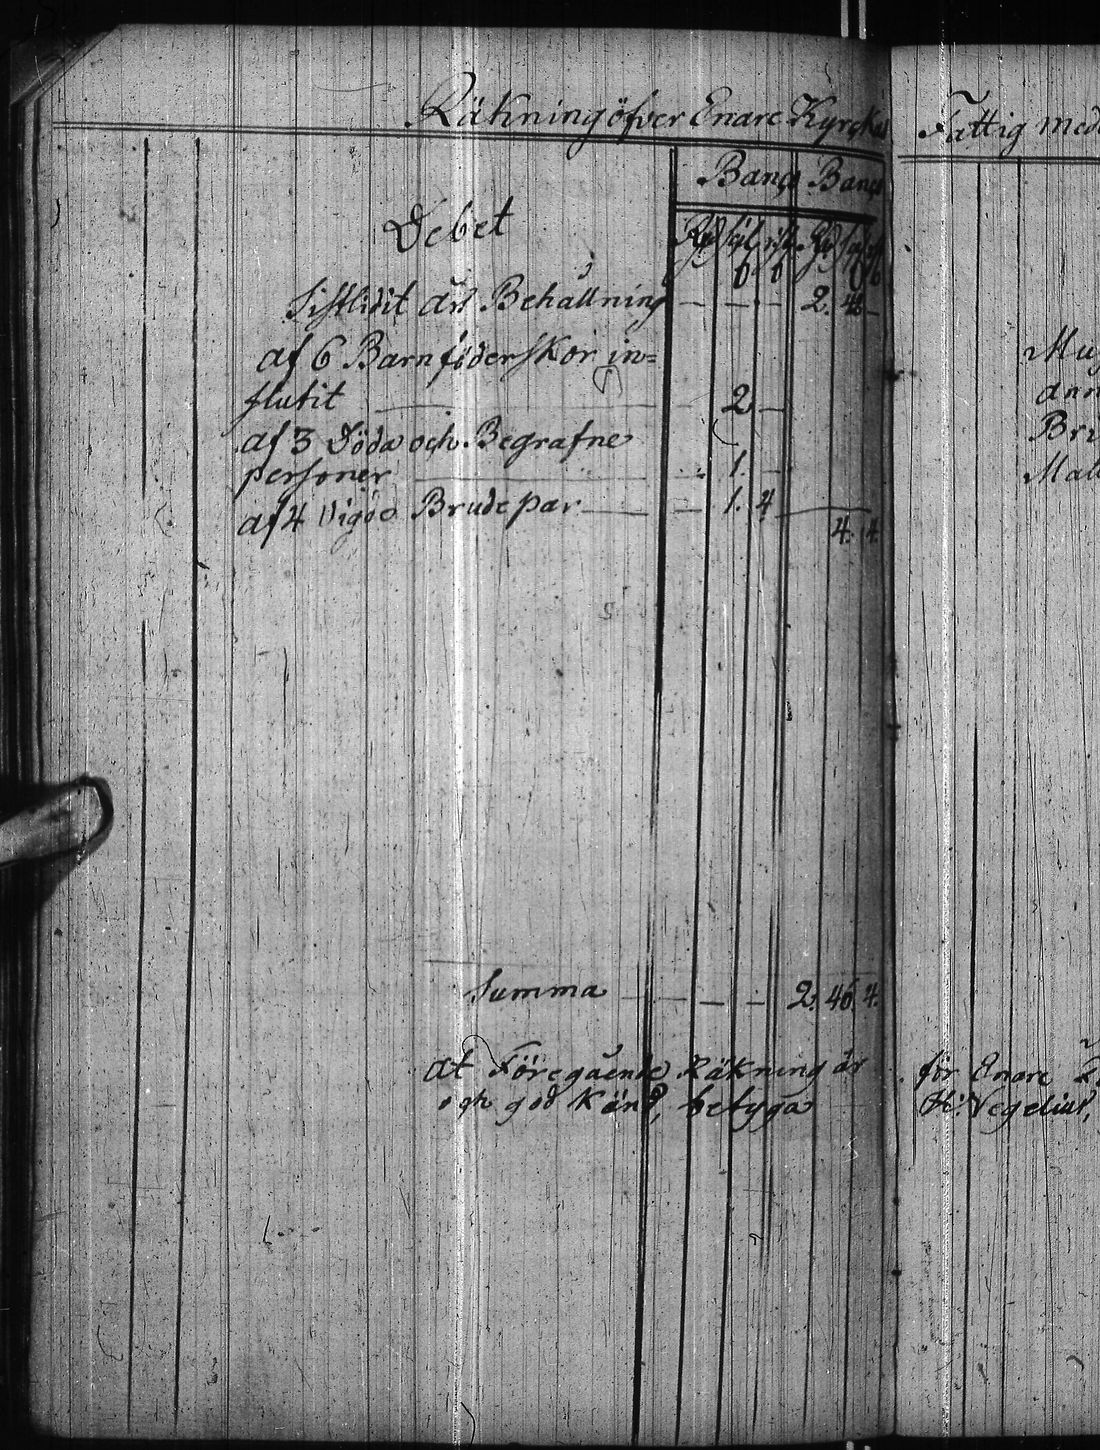 Räkning öfver Enare Kyrckas
Banco Banco
Debet
Rd skl rst Rd skl rst
Sistlidit års Behållning — — — 2. 42 —
af 6 Barnföderskor in=
flutit — 2 —
af 3 Döda och Begrafne
personer — 1. —
af 4 Vigde Brudepar — 1. 4
4. 4.
Summa — — — 2. 46. 4.
at Föregående Räkning är
och god känd, betyga
Fattig med
Bri
för Enare
H: Vegelius,